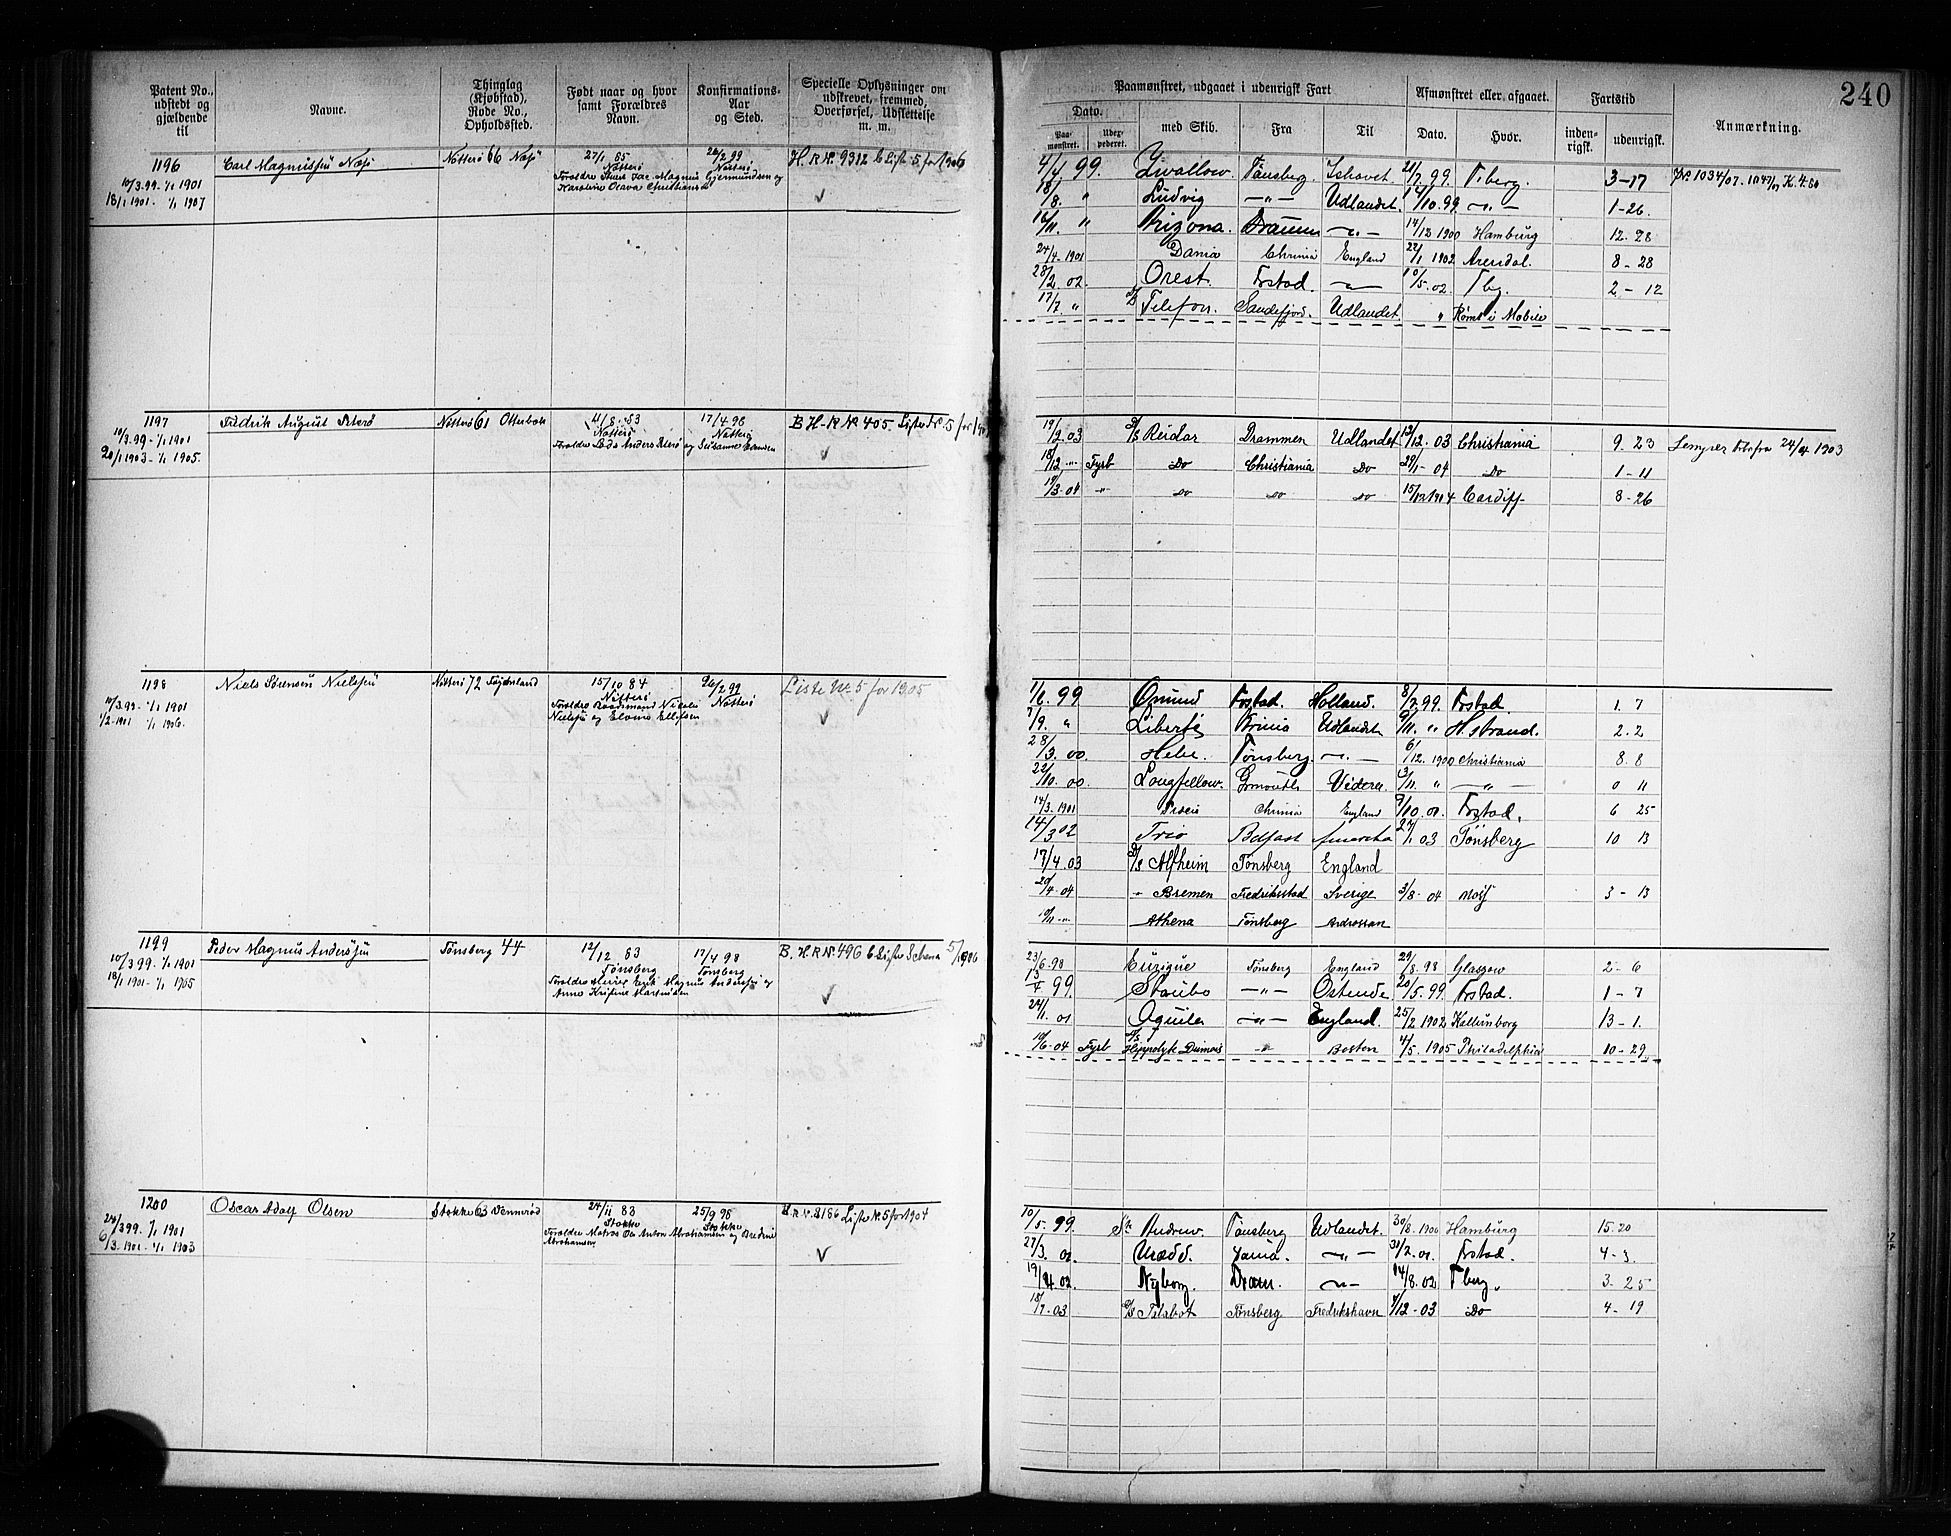 240
Patent No., udstedt og gjældende til
Navne.
Thinglag (Kjøbstad), Rode No., Opholdssted.
Født naar og hvor samt Forældres Navn.
Konfirmations-Aar og Sted.
Specielle Oplysninger om udskrevet, fremmed, Overførsel, Udslettelse m. m.
Paamønstret, udgaaet i udenrigsk Fart
Afmønstret eller afgaaet.
Fartstid
Anmærkning.
Dato.
Paa-mønstret.
Uder-pederet.
med Skib.
Fra
Til
Dato.
Hvor.
inden-rigsk.
udenrigsk.
1196
10/3.99-1/1 1901
18/1 1901 - 1/1 1907
Carl Magnussen Næs
Nøtterø 66 Næs
27/1 85
Nøtterø
Magnus Gjermundsen og
Karoline Olava
26/2 99
Nøtterø
H. R № 9312 Liste 5 for 1906
4/4 99. Tønsberg. Ishavet 21/7 99. T.berg. 3-17
18/8. " Ludvig -"- Udlandet. 14/10.99 -"- 1-26.
16/11. " Arizona. Drammen -"- 14/12 1900 Hamburg 12. 28
24/4-1901 Dania Chrinia England 22/1 1902 Arendal. 8-28
28/2.02. Orest. Frstad. -"- 10/5.02. Tbg. 2-12
17/7. " Telefon. Sandefjord. Udlandet " Rømt i Mobile
1197
10/3.99-1/1 1901
20/1 1903-1/1 1905.
Fredrik August Peterø
Nøtterø 61 Otterbæk
11/8.83
Nøtterø
17/4 98
Nøtterø
B H-R № 405. Liste № 5 for
19/2.03 D/S Reidar Drammen Udlandet 12/12.03 Christiania 9. 23
18/12 -"- Fyrb Do Christiania Do 29/1-04 Do 1-11
19/3-04 -"- Do Do Do 15/12 1904 Cardiff 8-26
24/4 1903
1198
10/3.99.-1/1 1901
1/2.1901 1/1 1906.
Niels Sørensen Nielsen
Nøtterø 72 Føjenland
15/10 84
Nøtterø
Nielsen og Elvine Ellefsen
26/2 99
Nøtterø
Liste № 5 for 1905
1/1. 99 Ømund Frstad. Holland. 8/2.99. Frstad. 1. 7
7/9. " Liberté Udlandet 9/11. " H.strand. 2. 2
28/3.00 Hebe. Tønsberg. -"- 6/12.1900 Christiania 8. 8
22/10.00. Longfellow. 3/11. " -"- 0 11
14/3.1901 Chrinia England 9/10.01. Frstad. 6 25
14/3 02 Trio Belfast 27/1.03 Tønsberg 10 13
17/4.03 D/S Alfheim Tønsberg England
20/4-04 " Bremen Fredriksstad Sverige 3/8-04 Moss 3-13
10/11 -"- Athena Tønsberg Ardrossan
1199
10/3 99.-1/1 1901
18/1 1901-1/1 1905
Peder Magnus Andersen
Tønsberg 44
12/12 83
Tønsberg
Magnus Andersen og
Anne Kristine Martinsen
17/4 98
Tønsberg
B. H.R № 496 Liste Schema 5/1906
23/6-98 Euzigue Tønsberg England 29/8.98 Glasgow 2-6
99. Staubo -"- Ostende 20/5.99. Frstad. 1-7
24/1. 01 Aquila -"- England. 25/2 1902 Kallunborg 13-1.
10/6-04 Fyrb D/S Hippolyte Dumois -"- Boston 4/5.1905 Philadelphia 10-29
1200
24/3 99. 1/1 1901
6/3.1901.-1/1 1903
Oscar Adolf Olsen
Stokke 63 Vennerød
24/11 83
Stokke
Forældre Matros Ole Anton Abrahamsen og Bredine
Abrahamsen
25/9 98
Stokke
H R № 8186 Liste № 5 for 1904
10/5.99. Sk Andrew. Tønsberg Udlandet. 30/8.1900 Hamburg 15.20
27/3. 01. Urædd. -"- 31/2.01. Frstad. 4-3
19/4 02. Nyborg. Dram. -"- 14/8.02 Tberg. 3-25
18/7-03 D/S Talabot Tønsberg. Fredrikshavn 7/12-03 Do 4-19